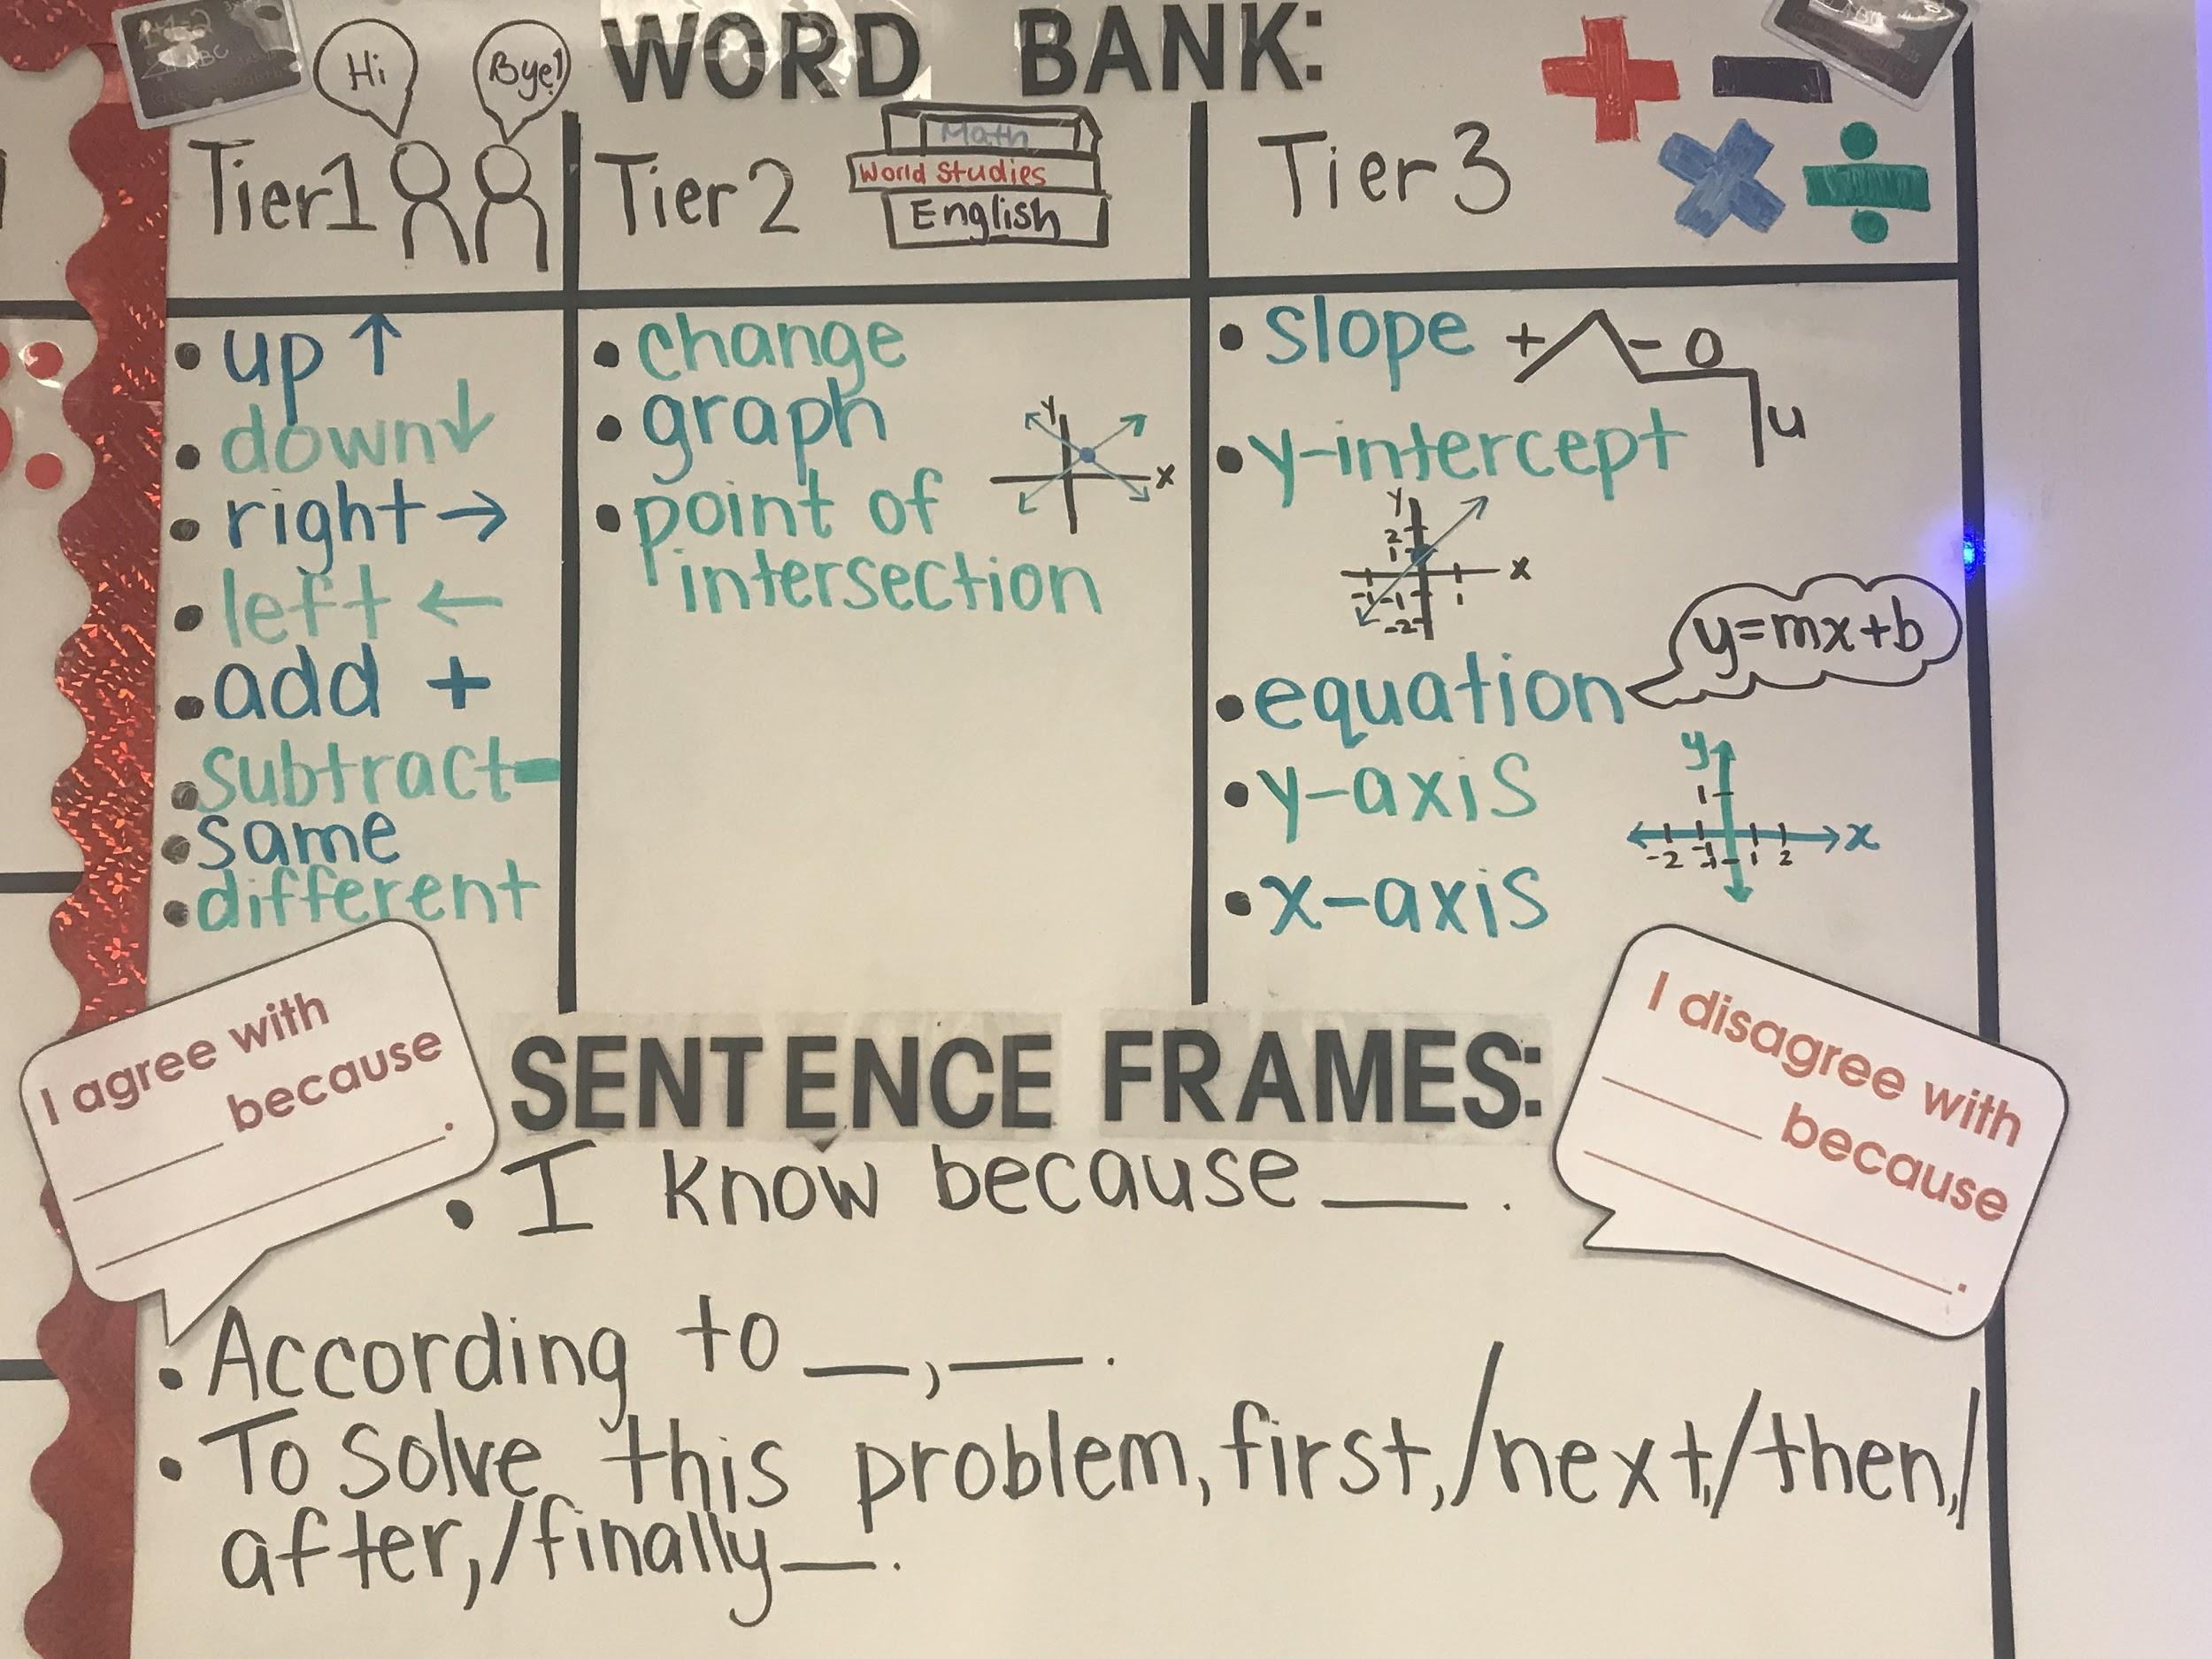 WORD BANK:
Hi
Bye!
Tier 1
Tier 2
Math
World Studies
English
Tier 3
+ − × ÷
• up ↑
• down ↓
• right →
• left ←
• add +
• subtract -
• same
• different
• change
• graph
• point of
intersection
y
x
• slope + - 0 u
• y-intercept
y
2
1
x
-1 -1 1
-2
• equation
y=mx+b
• y-axis
y
1
x
-2 -1 1 2
-1
• x-axis
I agree with
____ because
____.
SENTENCE FRAMES:
I disagree with
____ because
____.
• I know because ___.
• According to __, ___.
• To solve this problem, first,/next,/then,/
after,/finally __.